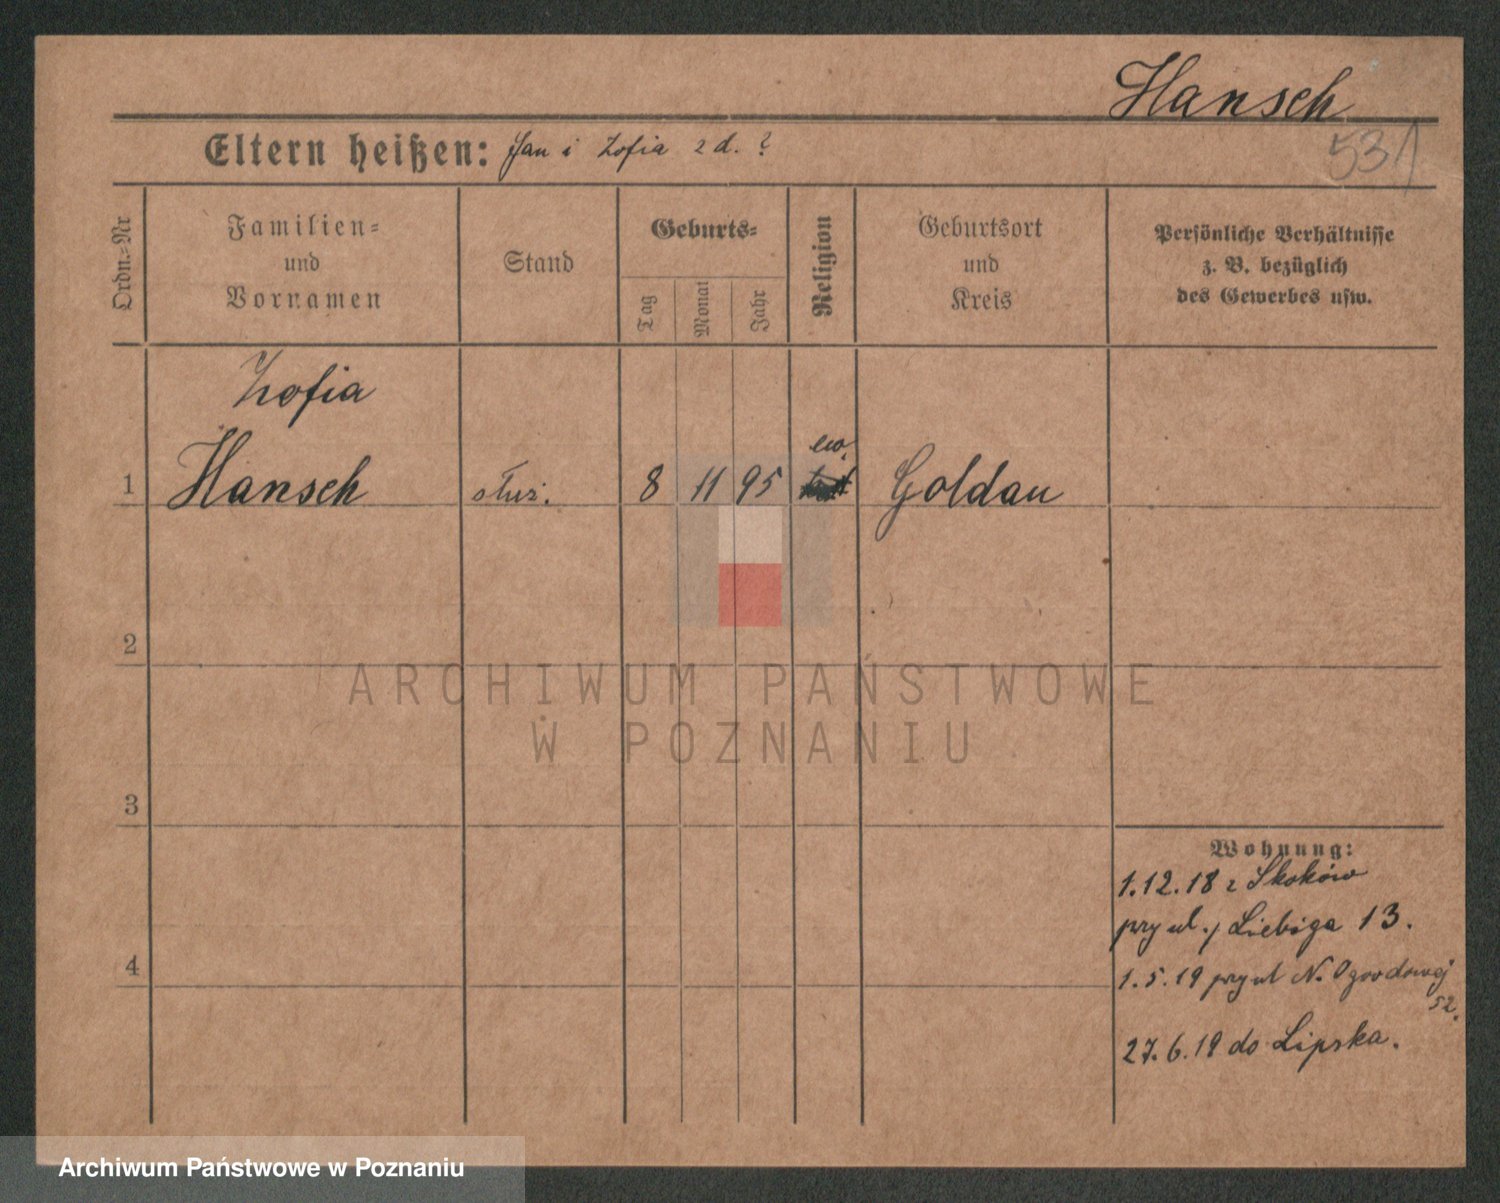 Hansch
531
Eltern heißen: Jan i Zofia z d. ?
Ordn.-Nr
Familien-
und
Vornamen
Stand
Geburts-
Tag
Monat
Jahr
Religion
Geburtsort
und
Kreis
Persönliche Verhältnisse
z. B. bezüglich
des Gewerbes usw.
Zofia
ew.
1 Hansch służ. 8 11 95 Goldau
2
ARCHIWUM PAŃSTWOWE
W POZNANIU
3
Wohnung:
1.12.18 z Skoków
przy ul. Liebiga 13.
4
1.5.19 przy ul N. Ogrodowej
52.
27.6.19 do Lipska.
Archiwum Państwowe w Poznaniu